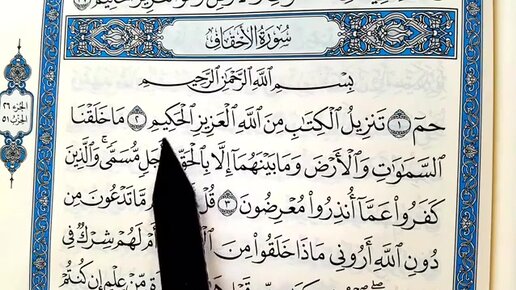 سُورَةُ الْأَحْقَافِ
بِسْمِ اللَّهِ الرَّحْمَٰنِ الرَّحِيمِ
حمٓ ١ تَنزِيلُ الْكِتَابِ مِنَ اللَّهِ الْعَزِيزِ الْحَكِيمِ ٢ مَا خَلَقْنَا
السَّمَاوَاتِ وَالْأَرْضَ وَمَا بَيْنَهُمَا إِلَّا بِالْحَقِّ جَلٍ مُّسَمًّى ۚ وَالَّذِينَ
كَفَرُوا عَمَّا أُنذِرُوا مُعْرِضُونَ ٣ قُلْ مَّا تَدْعُونَ مِن
دُونِ اللَّهِ أَرُونِي مَاذَا خَلَقُوا مِنَ أَمْ لَهُمْ شِرْكٌ فِي
مِّنْ عِلْمٍ إِن كُنتُمْ
الجزء ٢٦
الحزب ٥١